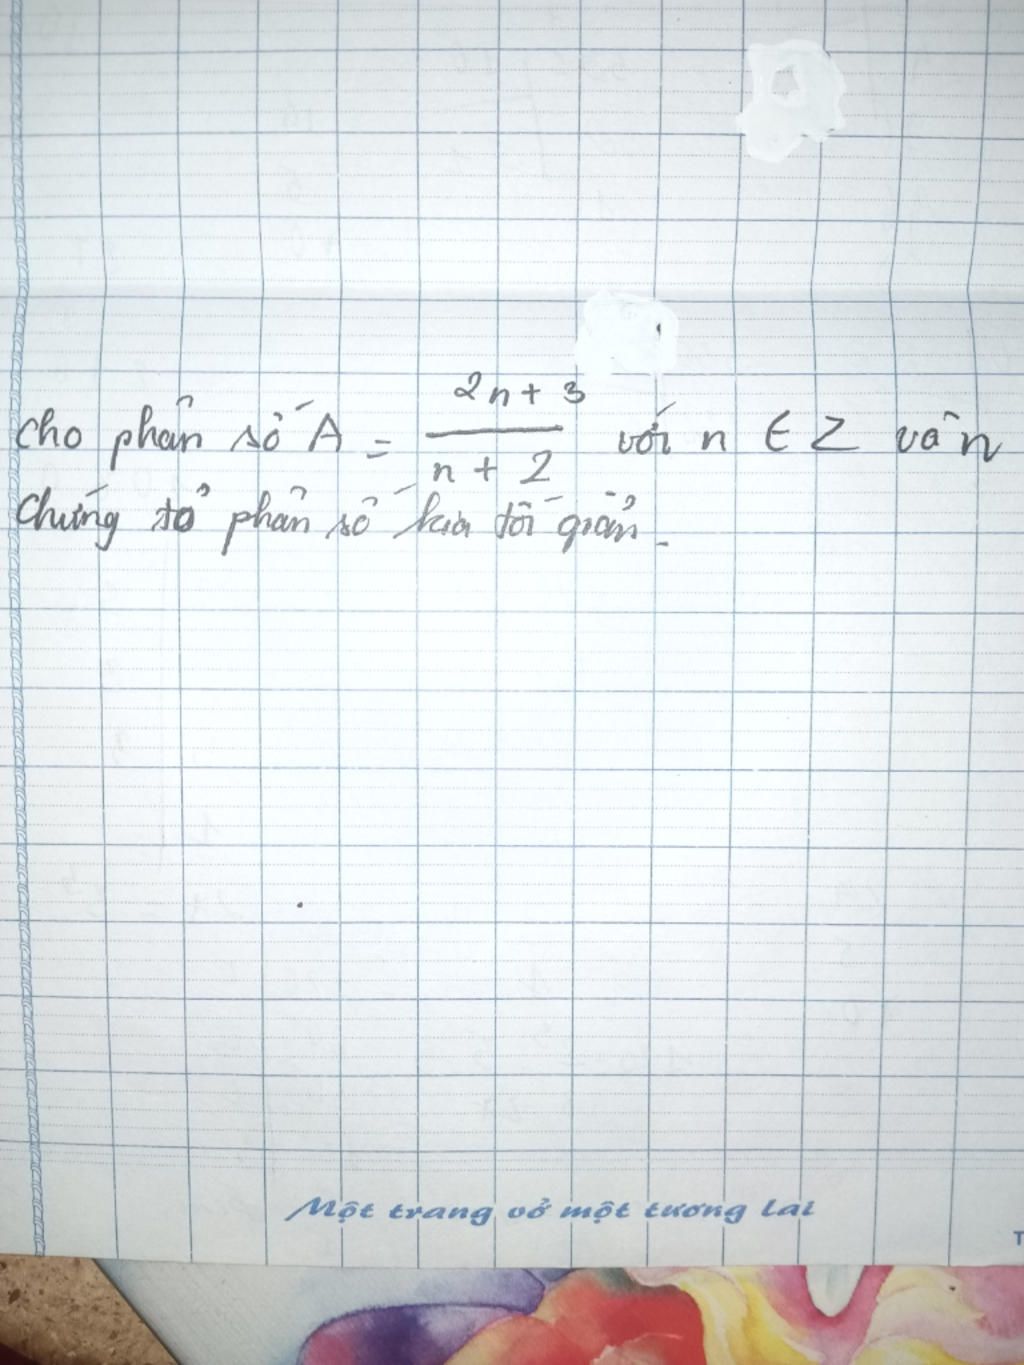 Cho phân số A = \frac{2n+3}{n+2} với n ∈ Z và n
Chứng tỏ phân số kia tối giản.
Một trang vở một tương lai
T